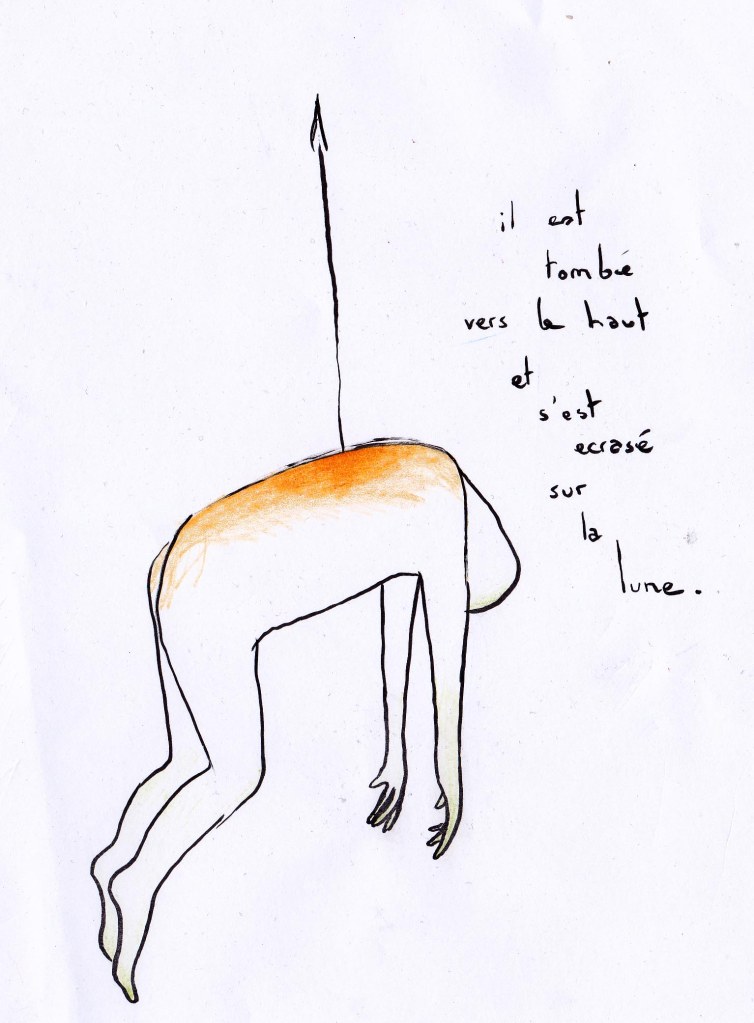 il est
tombé
vers le haut
et
s'est
ecrasé
sur
la
lune.